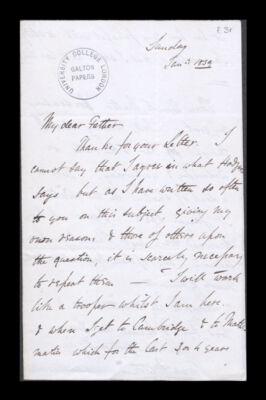 F. 31
UNIVERSITY COLLEGE LONDON
GALTON
PAPERS
Sunday
Jan 1839
My dear Father
Thanks for your letter. I
cannot say that I agree in what Hodgson
says but as I have written so often
to you on this subject, giving my
own reasons & those of others upon
the question, it is scarcely necessary
to repeat them — I will work
like a trooper whilst I am here.
& when I get to Cambridge & to Mathe
matics which for the last 3 or 4 years